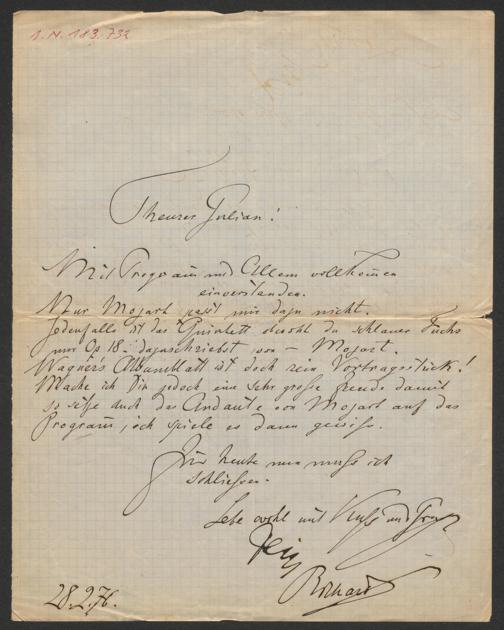 I.N. 183.732
Theurer Julian!
Mit Program̅ und Allem vollkom̅en
einverstanden.
Nur Mozart passt mir dazu nicht.
Jedenfalls ist das Quintett obwohl du schlauer Fuchs
nur Op 18. dazuschriebst von – Mozart.
Wagner's Albumblatt ist doch kein Vortragsstück!
Mache ich Dir jedoch eine sehr große Freude damit
so setze auch das Andante von Mozart auf das
Program̅, ich spiele es dann gewiss.
Für heute nun muß ich
schliessen.
Lebe wohl mit Kuß und Gruß
Dein
Richard
28.2.76.